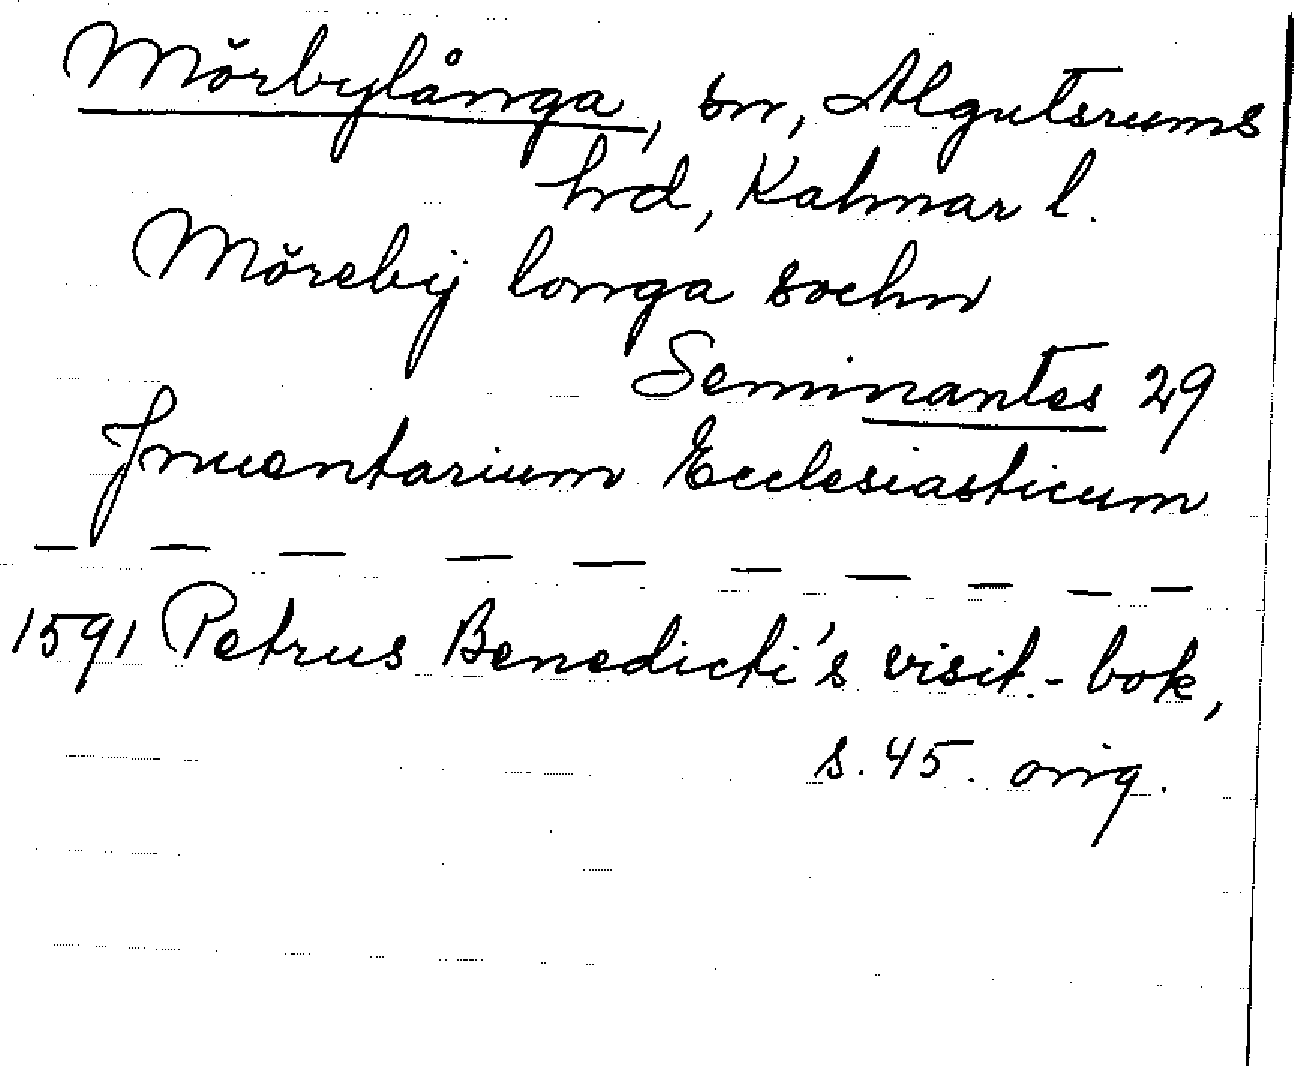 Mörbylånga, sn, Algutsrums
hrd, Kalmar l.
Mörebÿ longa sochn
Seminantes 29
Jnuentarium Ecclesiasticum
— — — — — — — — — —
1591 Petrus Benedicti's visit.-bok,
s. 45. orig.